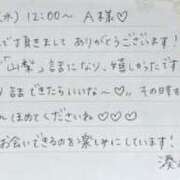 水) 12:00〜 A様♡
で頂きまして ありがとうございます!
「山梨」話になり、嬉しかったです
話できたらいいな〜♡ その時も
ほめてくださいね♡♡
お会いできるのを楽しみにしています!
湊